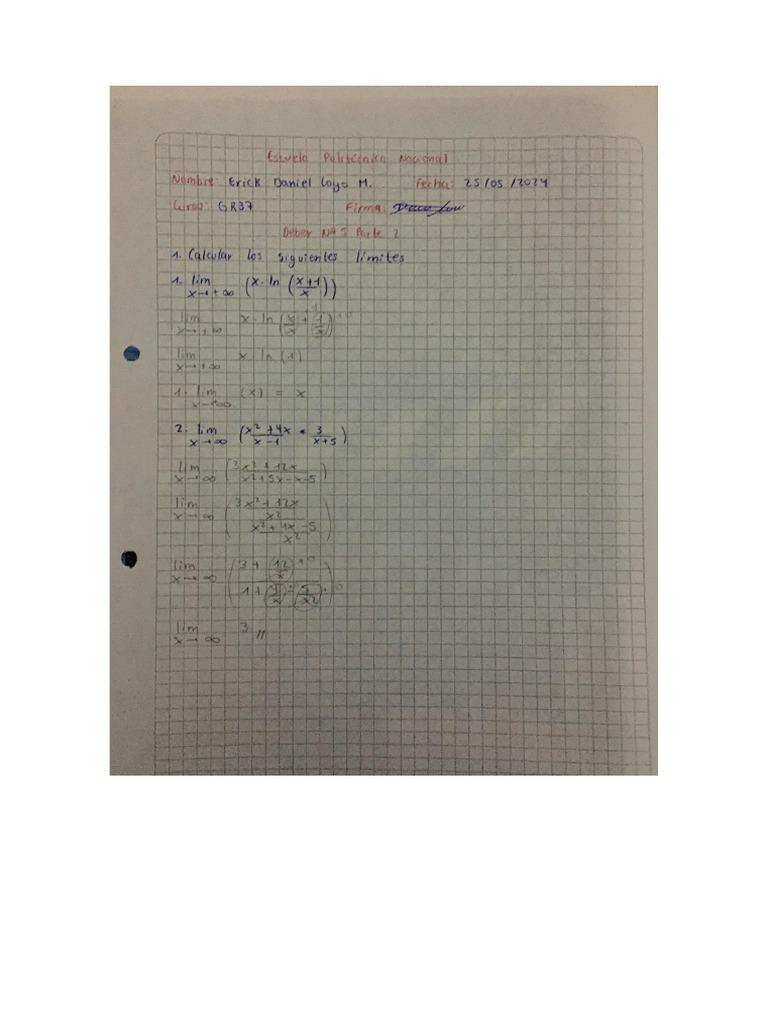 Escuela Politécnica Nacional
Nombre: Erick Daniel Loyo M. Fecha: 25/05/2024
Curso: GR37 Firma:
Deber N#5 Parte 2
1. Calcular los siguientes límites
1. lim x→+∞ (x·ln((x+1)/x))
lim x→+∞ x·ln(x/x + 1/x)
lim x→+∞ x·ln(1)
1· lim x→+∞ (x) = x
2. lim x→∞ ((x²+4x)/(x-1) * 3/(x+5))
lim x→∞ ((3x²+12x)/(x²+5x-x-5))
lim x→∞ (((3x²+12x)/x²)/((x²+4x-5)/x²))
lim x→∞ ((3+(12/x)→0)/(1+(4/x)-(5/x²)→0))
lim x→∞ 3 //